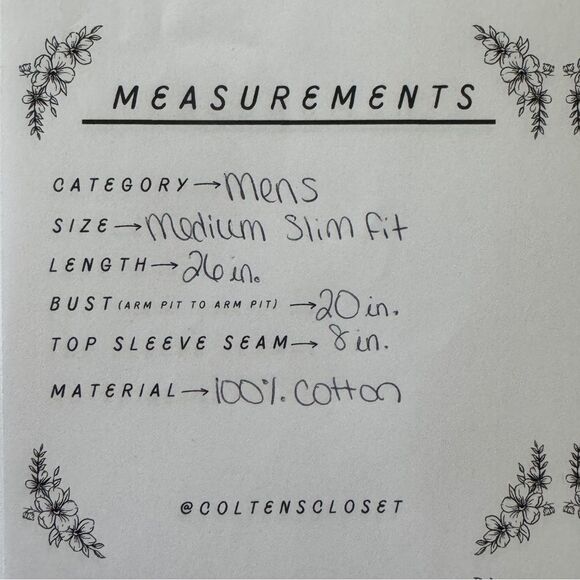 MEASUREMENTS
CATEGORY → Mens
SIZE → Medium Slim Fit
LENGTH → 26 in.
BUST (ARM PIT TO ARM PIT) → 20 in.
TOP SLEEVE SEAM → 8 in.
MATERIAL → 100% Cotton
@COLTENSCLOSET